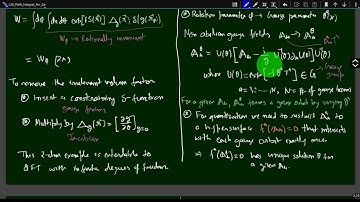 L28_Path_Integral_For_Ga
W = ∫dφ ∫dr dr exp[i S(r⃗)] Δg(r⃗) δ(g(r⃗φ))
Wφ → Rotationally invariant
= Wφ (2π)
To remove the irrelevant volume factor
① Insert a constraining δ-function
gauge fixing
② Multiply by Δg(r⃗) = [∂g/∂θ] g=0
Jacobian
This 2-dim example is extendable to
QFT with infinite degrees of freedom.
Rotation parameter → Gauge parameter θ(x)
Non abelian gauge fields
where U(θ) = exp[-i θᵃTᵃ] ∈ G
a = 1, ... N, N = # of gauge bosons
For a given Aμ, forms a gauge orbit by varying θ
For quantization we need to restrict Aμ to
a hypersurface f(Aμ) = 0 that intersects
with each gauge orbit exactly once.
⇒ f(Aμ) = 0 has unique solution θ for
a given Aμ.